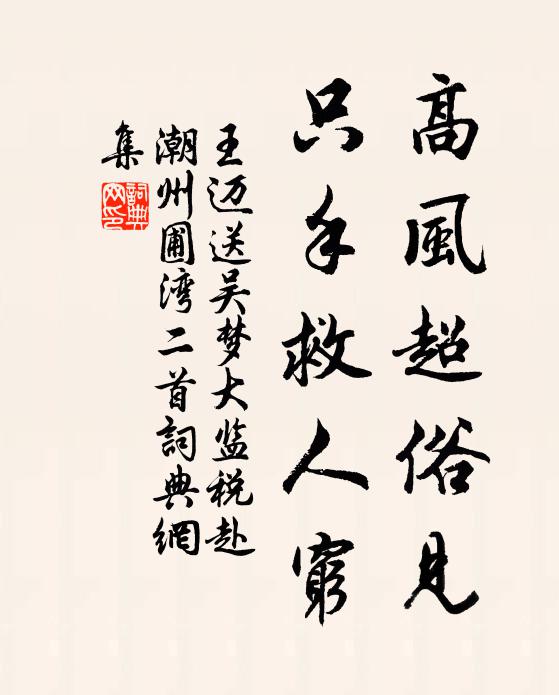 高風超俗見
只手救人窮
王迈送吴梦大监税赴
潮州圃湾二首詞典網
集
詞典
网印